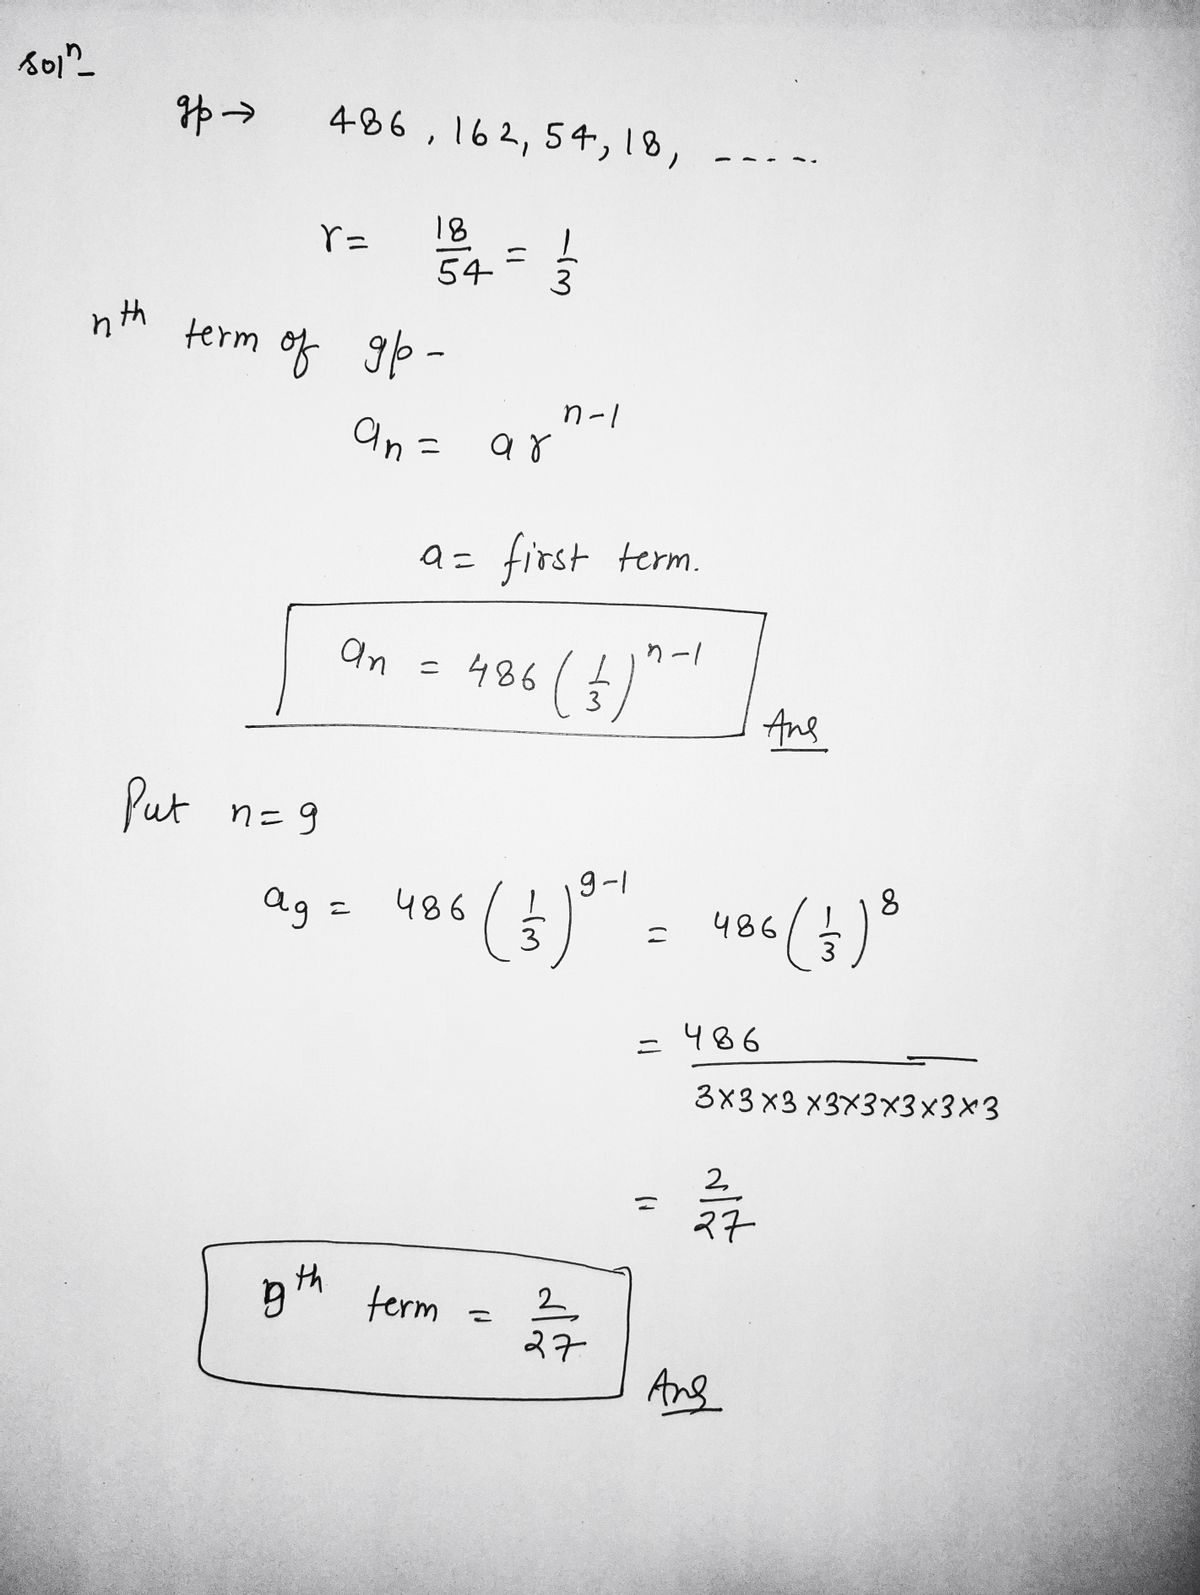 solⁿ-
gp → 486, 162, 54, 18, -----
r = 18/54 = 1/3
nth term of gp -
aₙ = arⁿ⁻¹
a = first term.
aₙ = 486 (1/3)ⁿ⁻¹
Ans
Put n = 9
a₉ = 486 (1/3)⁹⁻¹ = 486 (1/3)⁸
= 486 / 3×3×3×3×3×3×3×3
= 2/27
9th term = 2/27
Ans